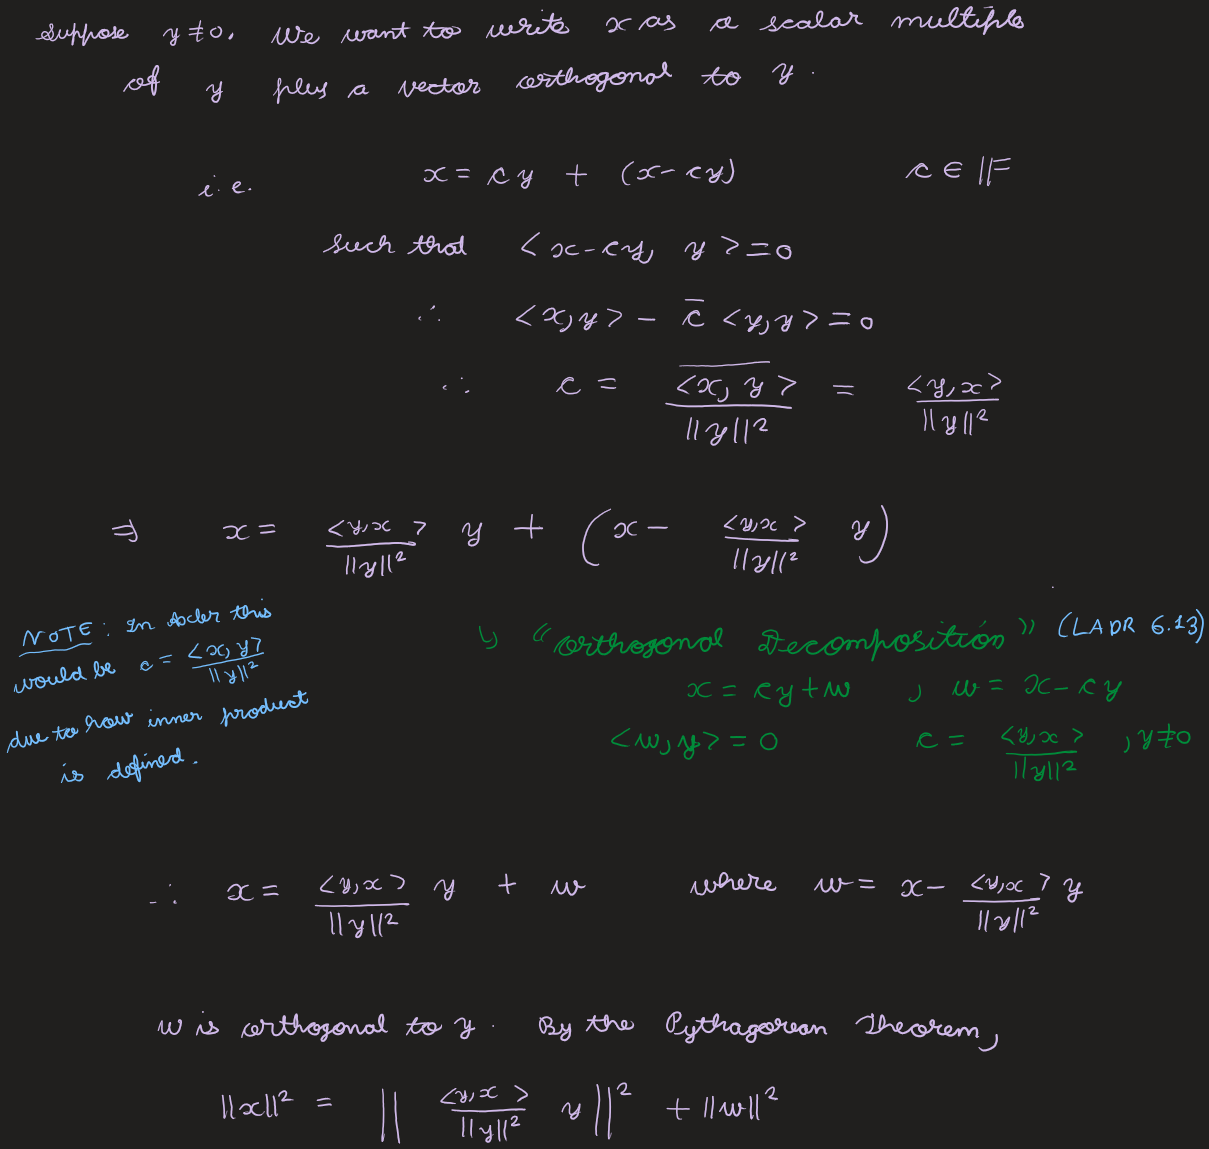 Suppose y ≠ 0. We want to write x as a scalar multiple
of y plus a vector orthogonal to y.
i.e. x = cy + (x - cy) c ∈ 𝔽
such that <x - cy, y> = 0
∴ <x, y> - c̅ <y, y> = 0
∴ c = \overline{<x, y>} / ||y||² = <y, x> / ||y||²
⇒ x = <y, x> / ||y||² y + (x - <y, x> / ||y||² y)
NOTE: In Axler this
would be c = <x, y> / ||y||²
due to how inner product
is defined.
↳ "Orthogonal Decomposition" (LADR 6.13)
x = cy + w , w = x - cy
<w, y> = 0 c = <y, x> / ||y||² , y ≠ 0
∴ x = <y, x> / ||y||² y + w where w = x - <y, x> / ||y||² y
w is orthogonal to y. By the Pythagorean Theorem,
||x||² = || <y, x> / ||y||² y ||² + ||w||²